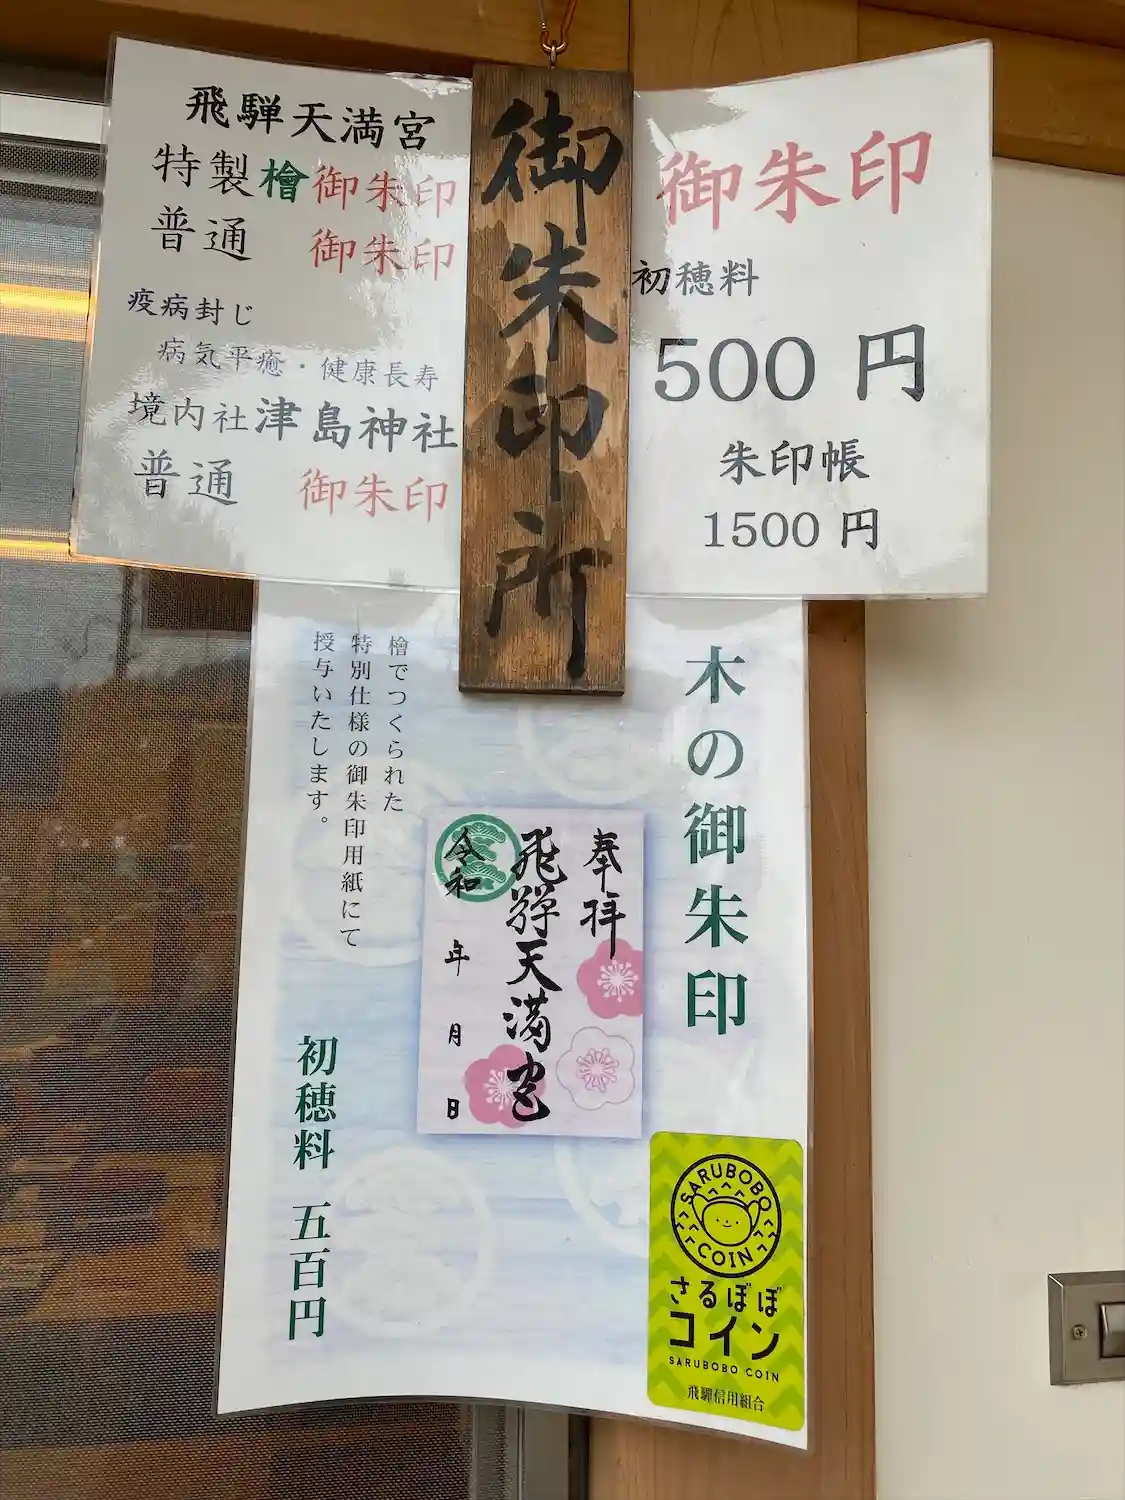 飛騨天満宮
特製檜御朱印
普通 御朱印
疫病封じ
病気平癒・健康長寿
境内社津島神社
普通 御朱印
御朱印所
御朱印
初穂料
500 円
朱印帳
1500 円
木の御朱印
檜でつくられた
特別仕様の御朱印用紙にて
授与いたします。
奉拝
飛騨天満宮
令和 年 月 日
初穂料 五百円
SARUBOBO
COIN
さるぼぼ
コイン
SARUBOBO COIN
飛騨信用組合